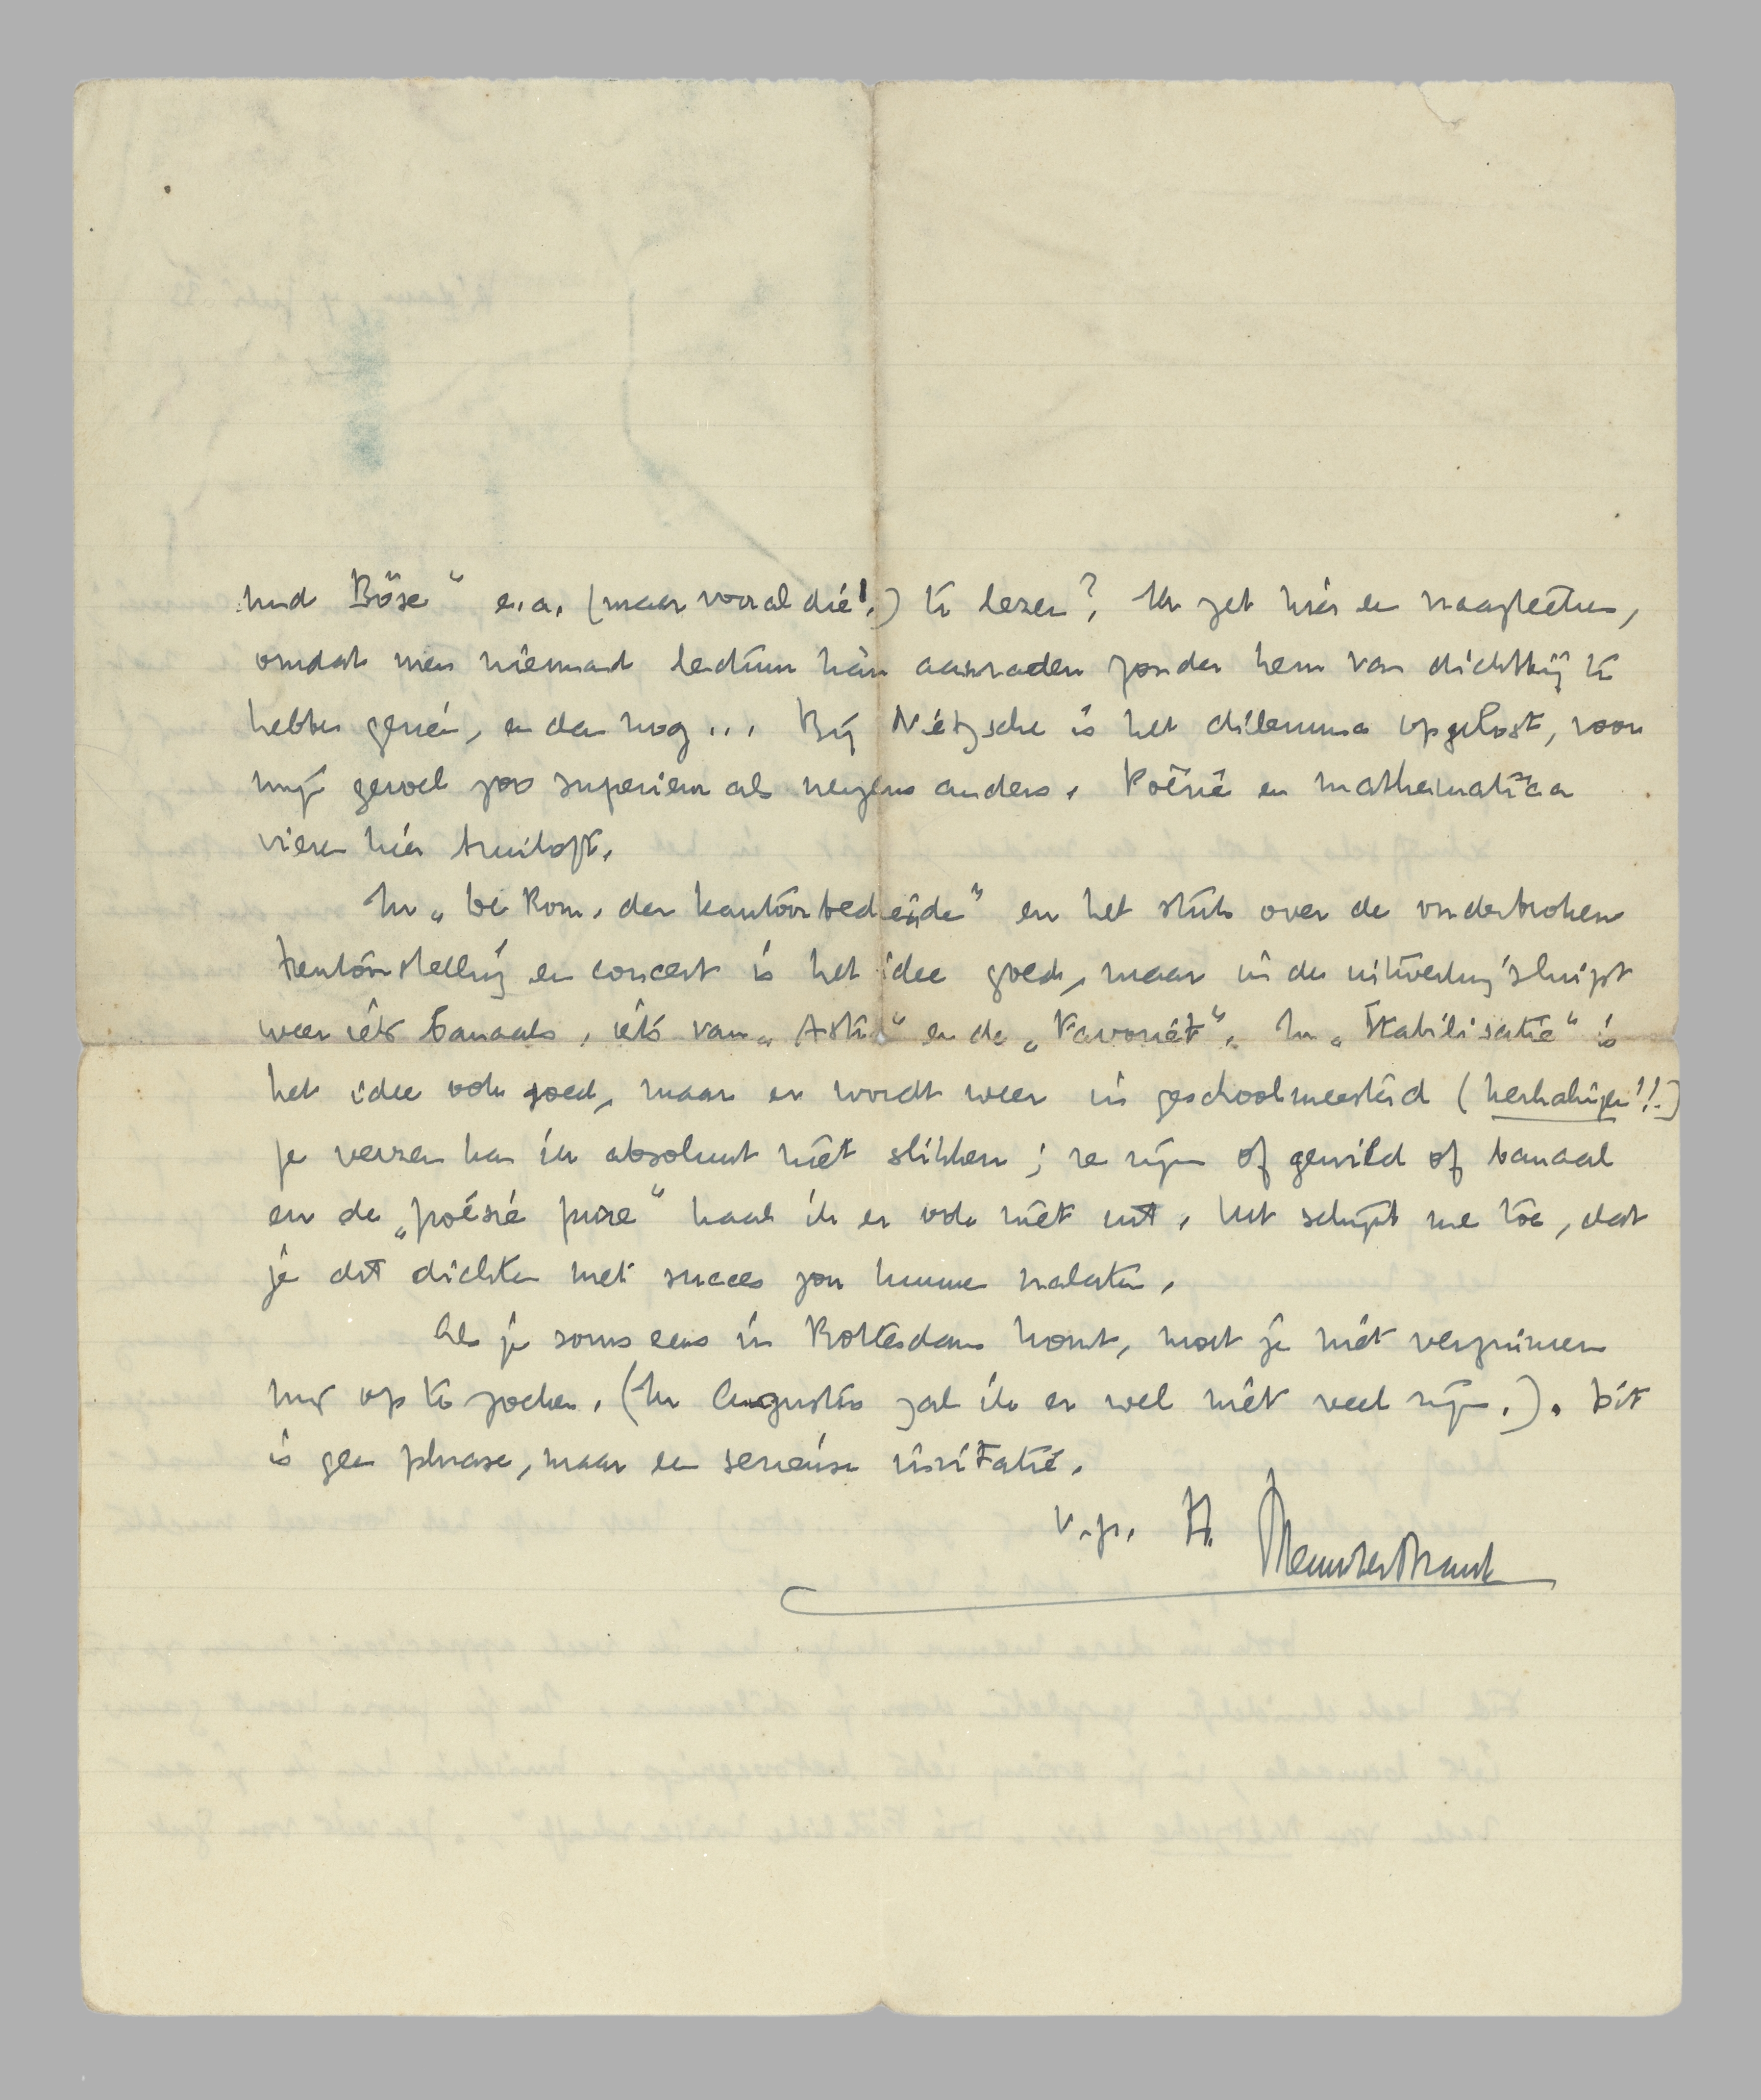 und Böse" e.a. (maar vooral die!) te lezen? Ik zet hier een vraagteeken,
omdat men niemand lectuur kàn aanraden zonder hem van dichtbij te
hebben gezien, en dan nog... Bij Nietzsche is het dilemma opgelost, voor
mijn gevoel zoo superieur als nergens anders. Poëzie en mathematica
vieren hier bruiloft.
In „De Rom. der kantoorbediende" en het stuk over de onderbroken
tentoonstelling en concert is het idee goed, maar in de uitwerking sluipt
weer iets banaals, iets van „Astra" en de „Favoriet". In „Stabilisatie" is
het idee ook goed, maar er wordt weer in geschoolmeesterd (herhalingen!!)
Je verzen kan ik absoluut niet slikken; ze zijn of gewild of banaal
en de „poésie pure" haal ik er ook niet uit. Het schijnt me toe, dat
je dit dichten met succes zou kunnen nalaten.
Als je soms eens in Rotterdam komt, moet je niet verzuimen
mij op te zoeken. (In Augustus zal ik er wel niet veel zijn.). Dit
is geen phrase, maar een serieuse invitatie.
t.t. M. ter Braak